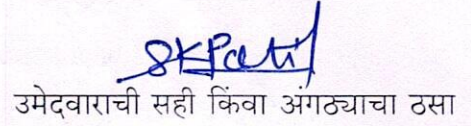 SKPatil
उमेदवाराची सही किंवा अंगठ्याचा ठसा